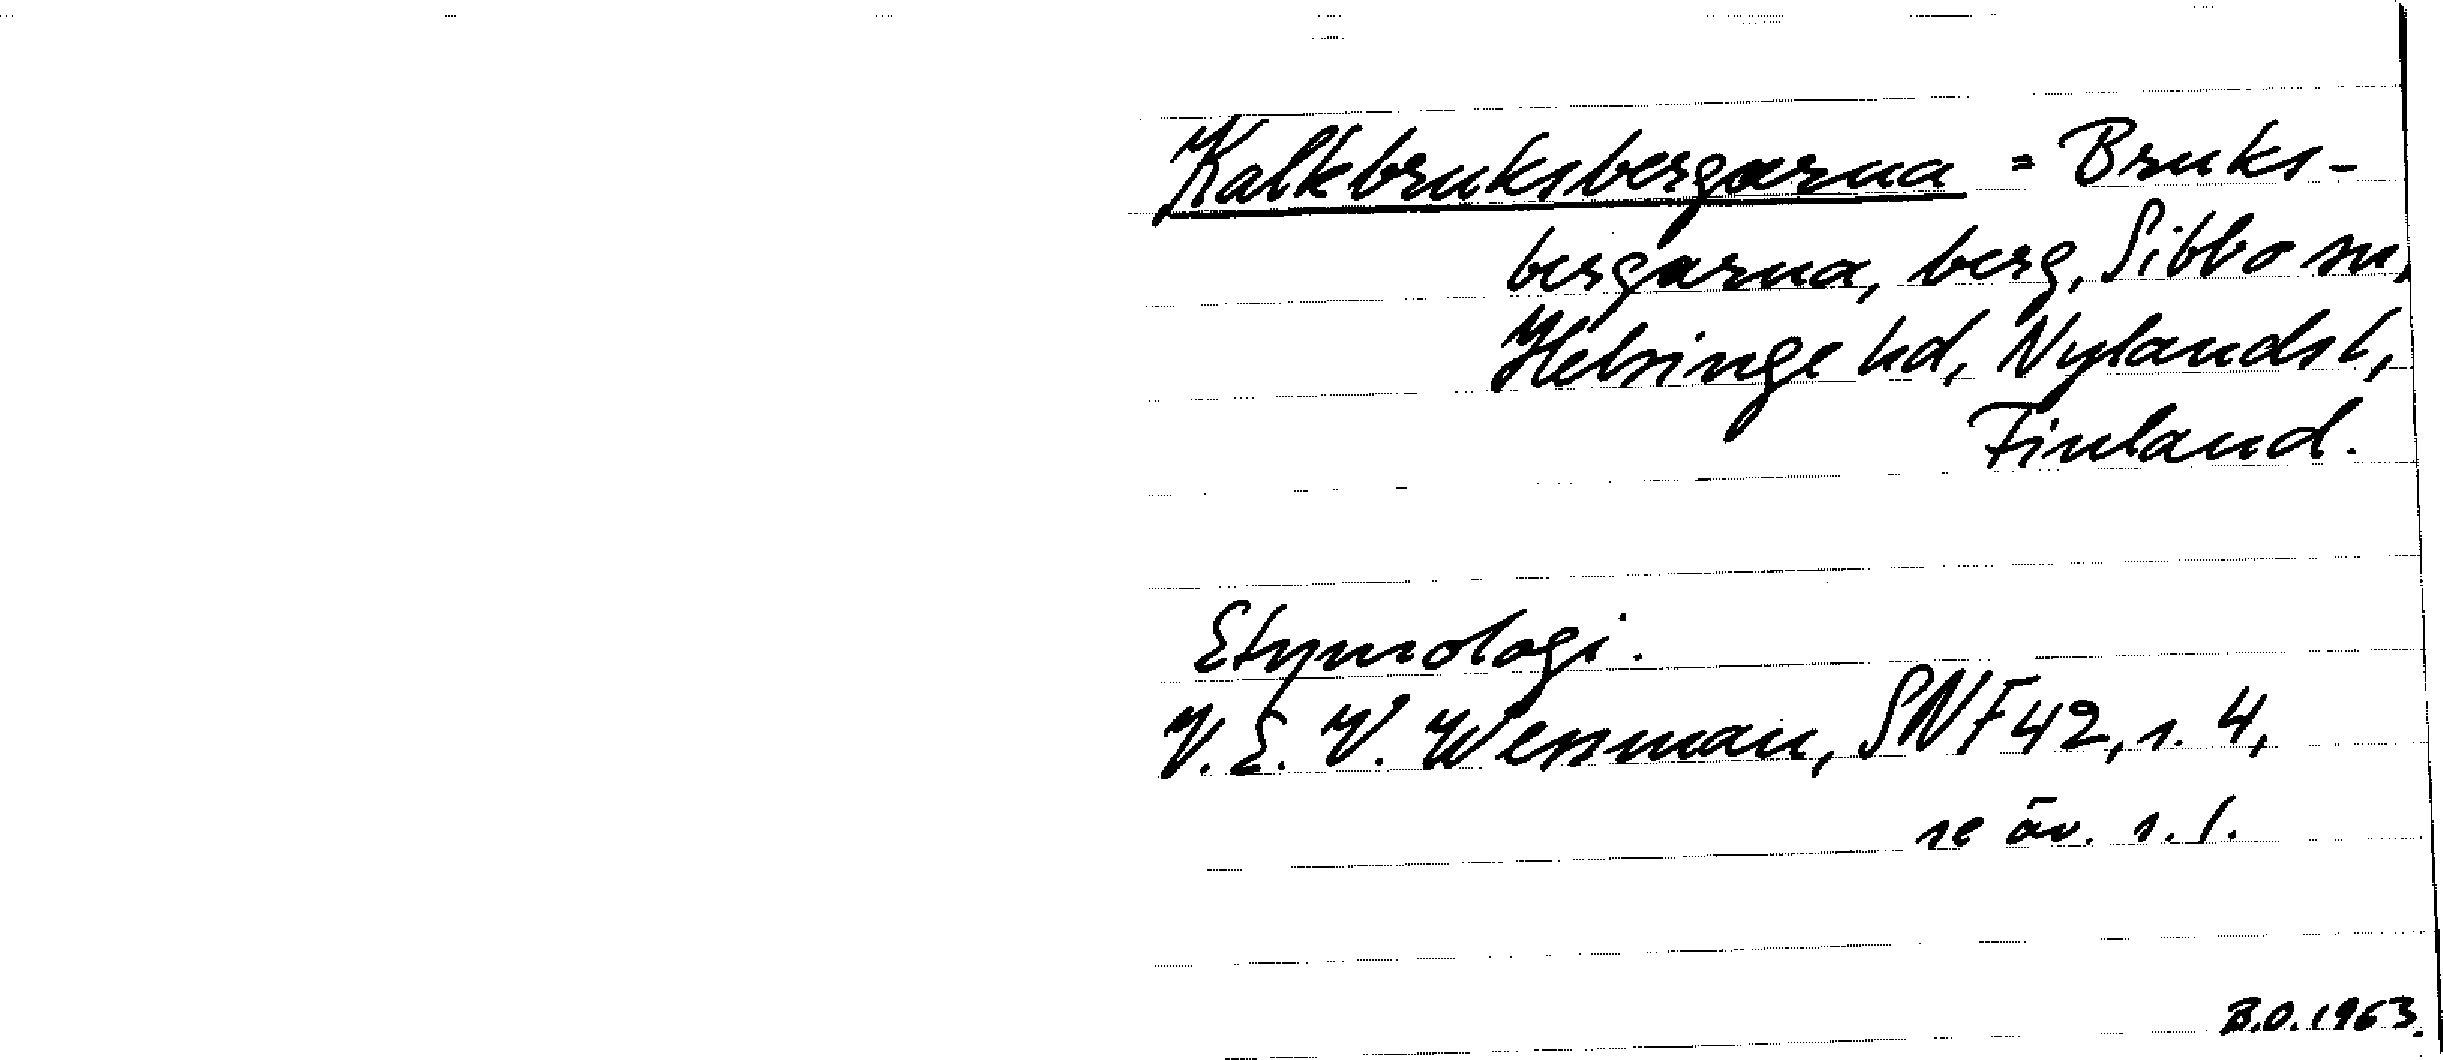 Kalkbruksbergarna = Bruks-
bergarna, berg, Sibbo sn,
Helsinge hd, Nylands l,
Finland.
Etymologi.
V. E. V. Wessman, SNF 42, s. 4,
se äv. s. 1.
B.O. 1963.